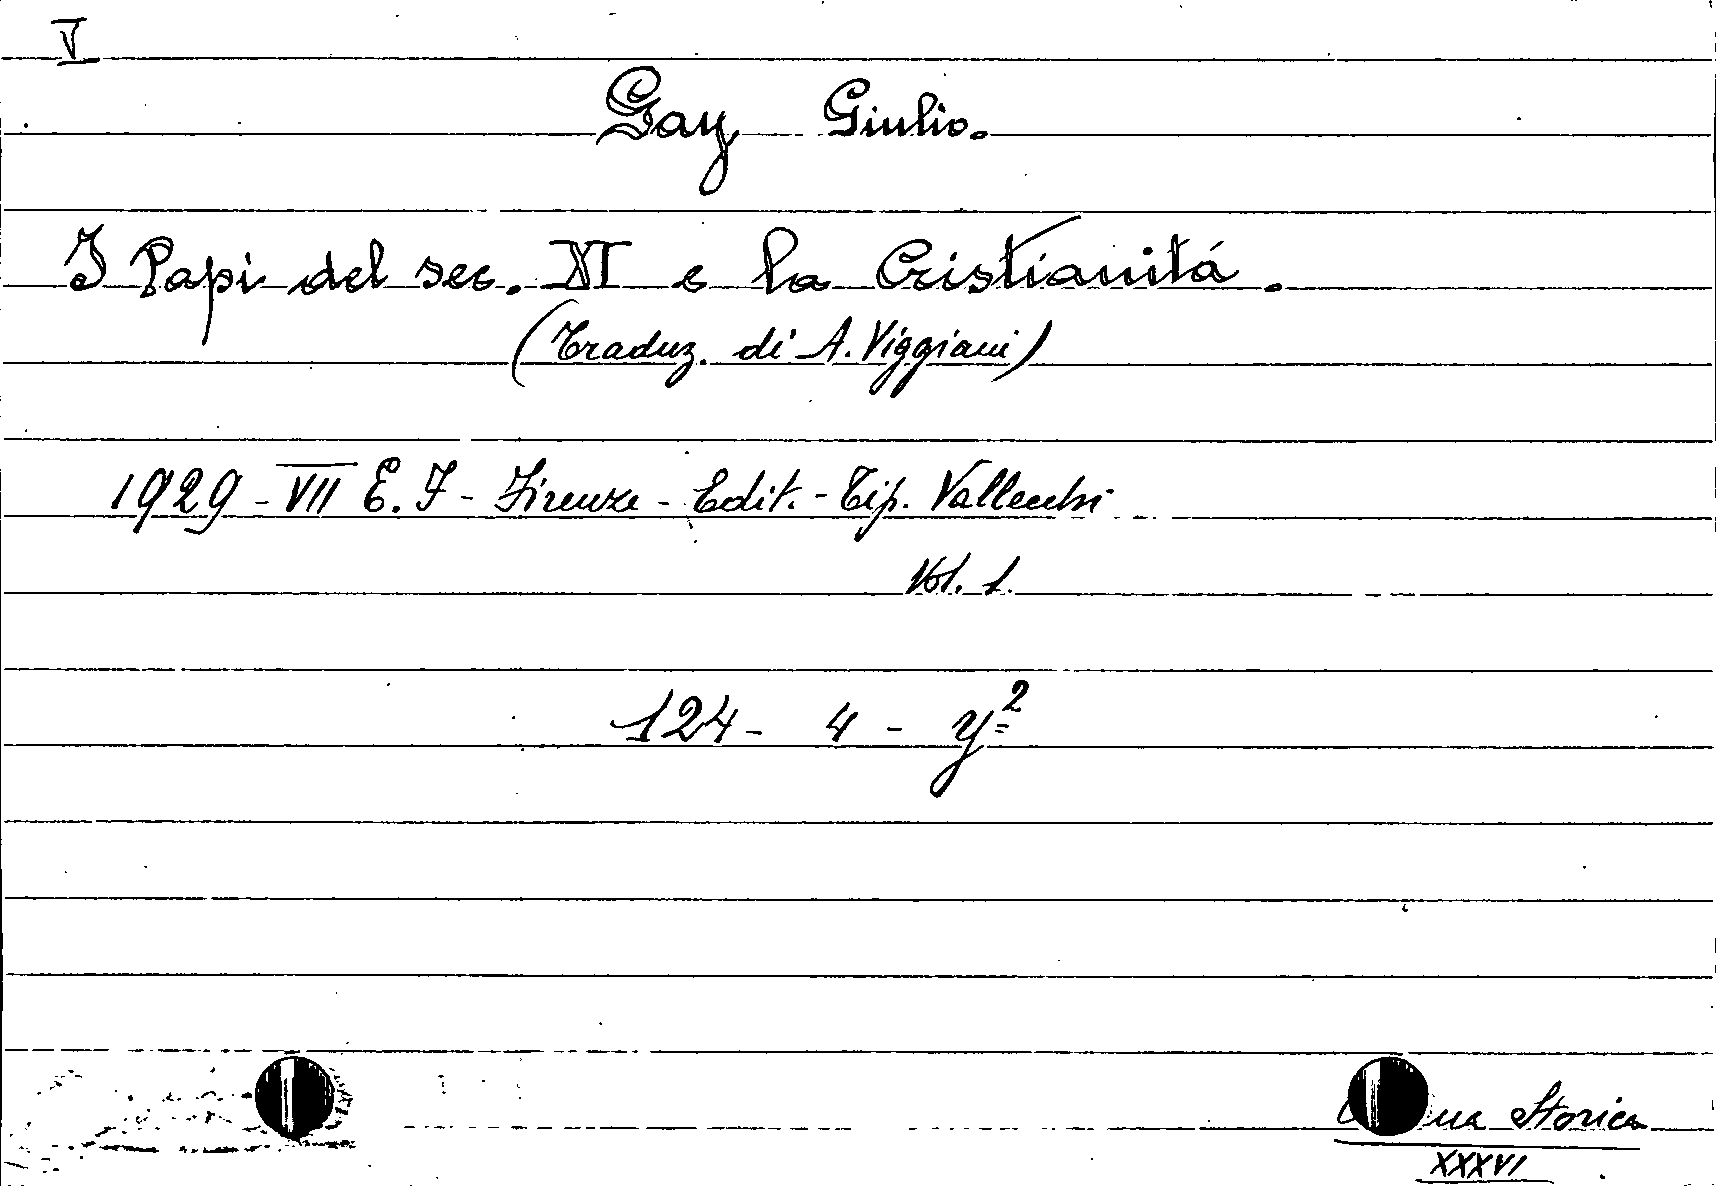 V
Gay Giulio.
I Papi del sec. XI e la Cristianitá.
(Traduz. di A. Viggiani)
1929 - VII E. F - Firenze - Edit. - Tip. Vallecchi
Vol. 1.
124 - 4 - y²
Storica
XXXVI